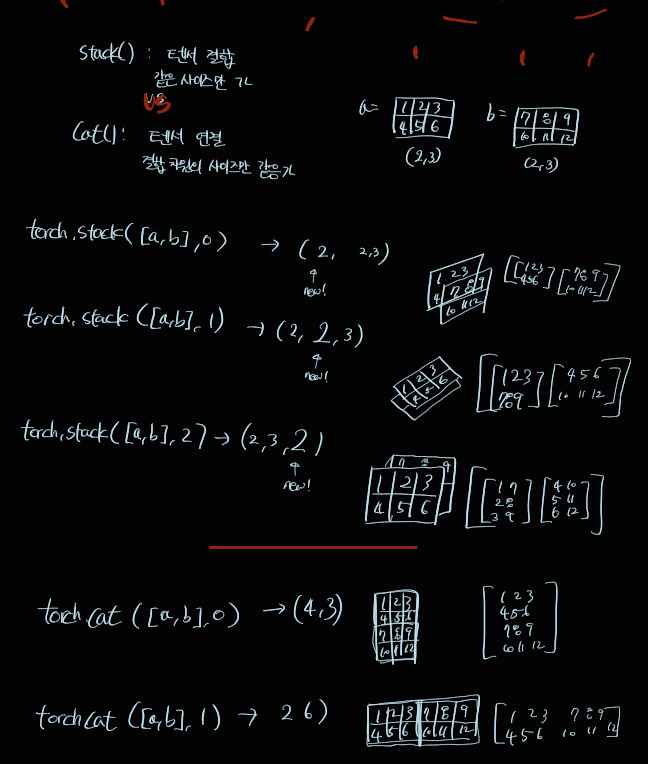 stack() : 텐서 결합
같은 사이즈만 가
vs
VS
Cat() : 텐서 연결
결합 차원의 사이즈만 같음가
a=
1 2 3
4 5 6
(2,3)
b=
7 8 9
10 11 12
(2,3)
torch.stack([a,b],0) → (2, 2,3)
new!
1 2 3
4 7 8 9
10 11 12
[[1 2 3
4 5 6] [7 8 9
10 11 12]]
torch.stack([a,b],1) → (2, 2, 3)
new!
1 2 3
4 5 6
[[1 2 3
7 8 9] [4 5 6
10 11 12]]
torch.stack([a,b],2) → (2,3,2)
new!
7 8 9
1 2 3
4 5 6
[[1 7
2 8
3 9] [4 10
5 11
6 12]]
torch.cat([a,b],0) → (4,3)
1 2 3
4 5 6
7 8 9
10 11 12
[1 2 3
4 5 6
7 8 9
10 11 12]
torch cat([a,b],1) → 2 6)
1 2 3 7 8 9
4 5 6 10 11 12
[1 2 3 7 8 9
4 5 6 10 11 12]